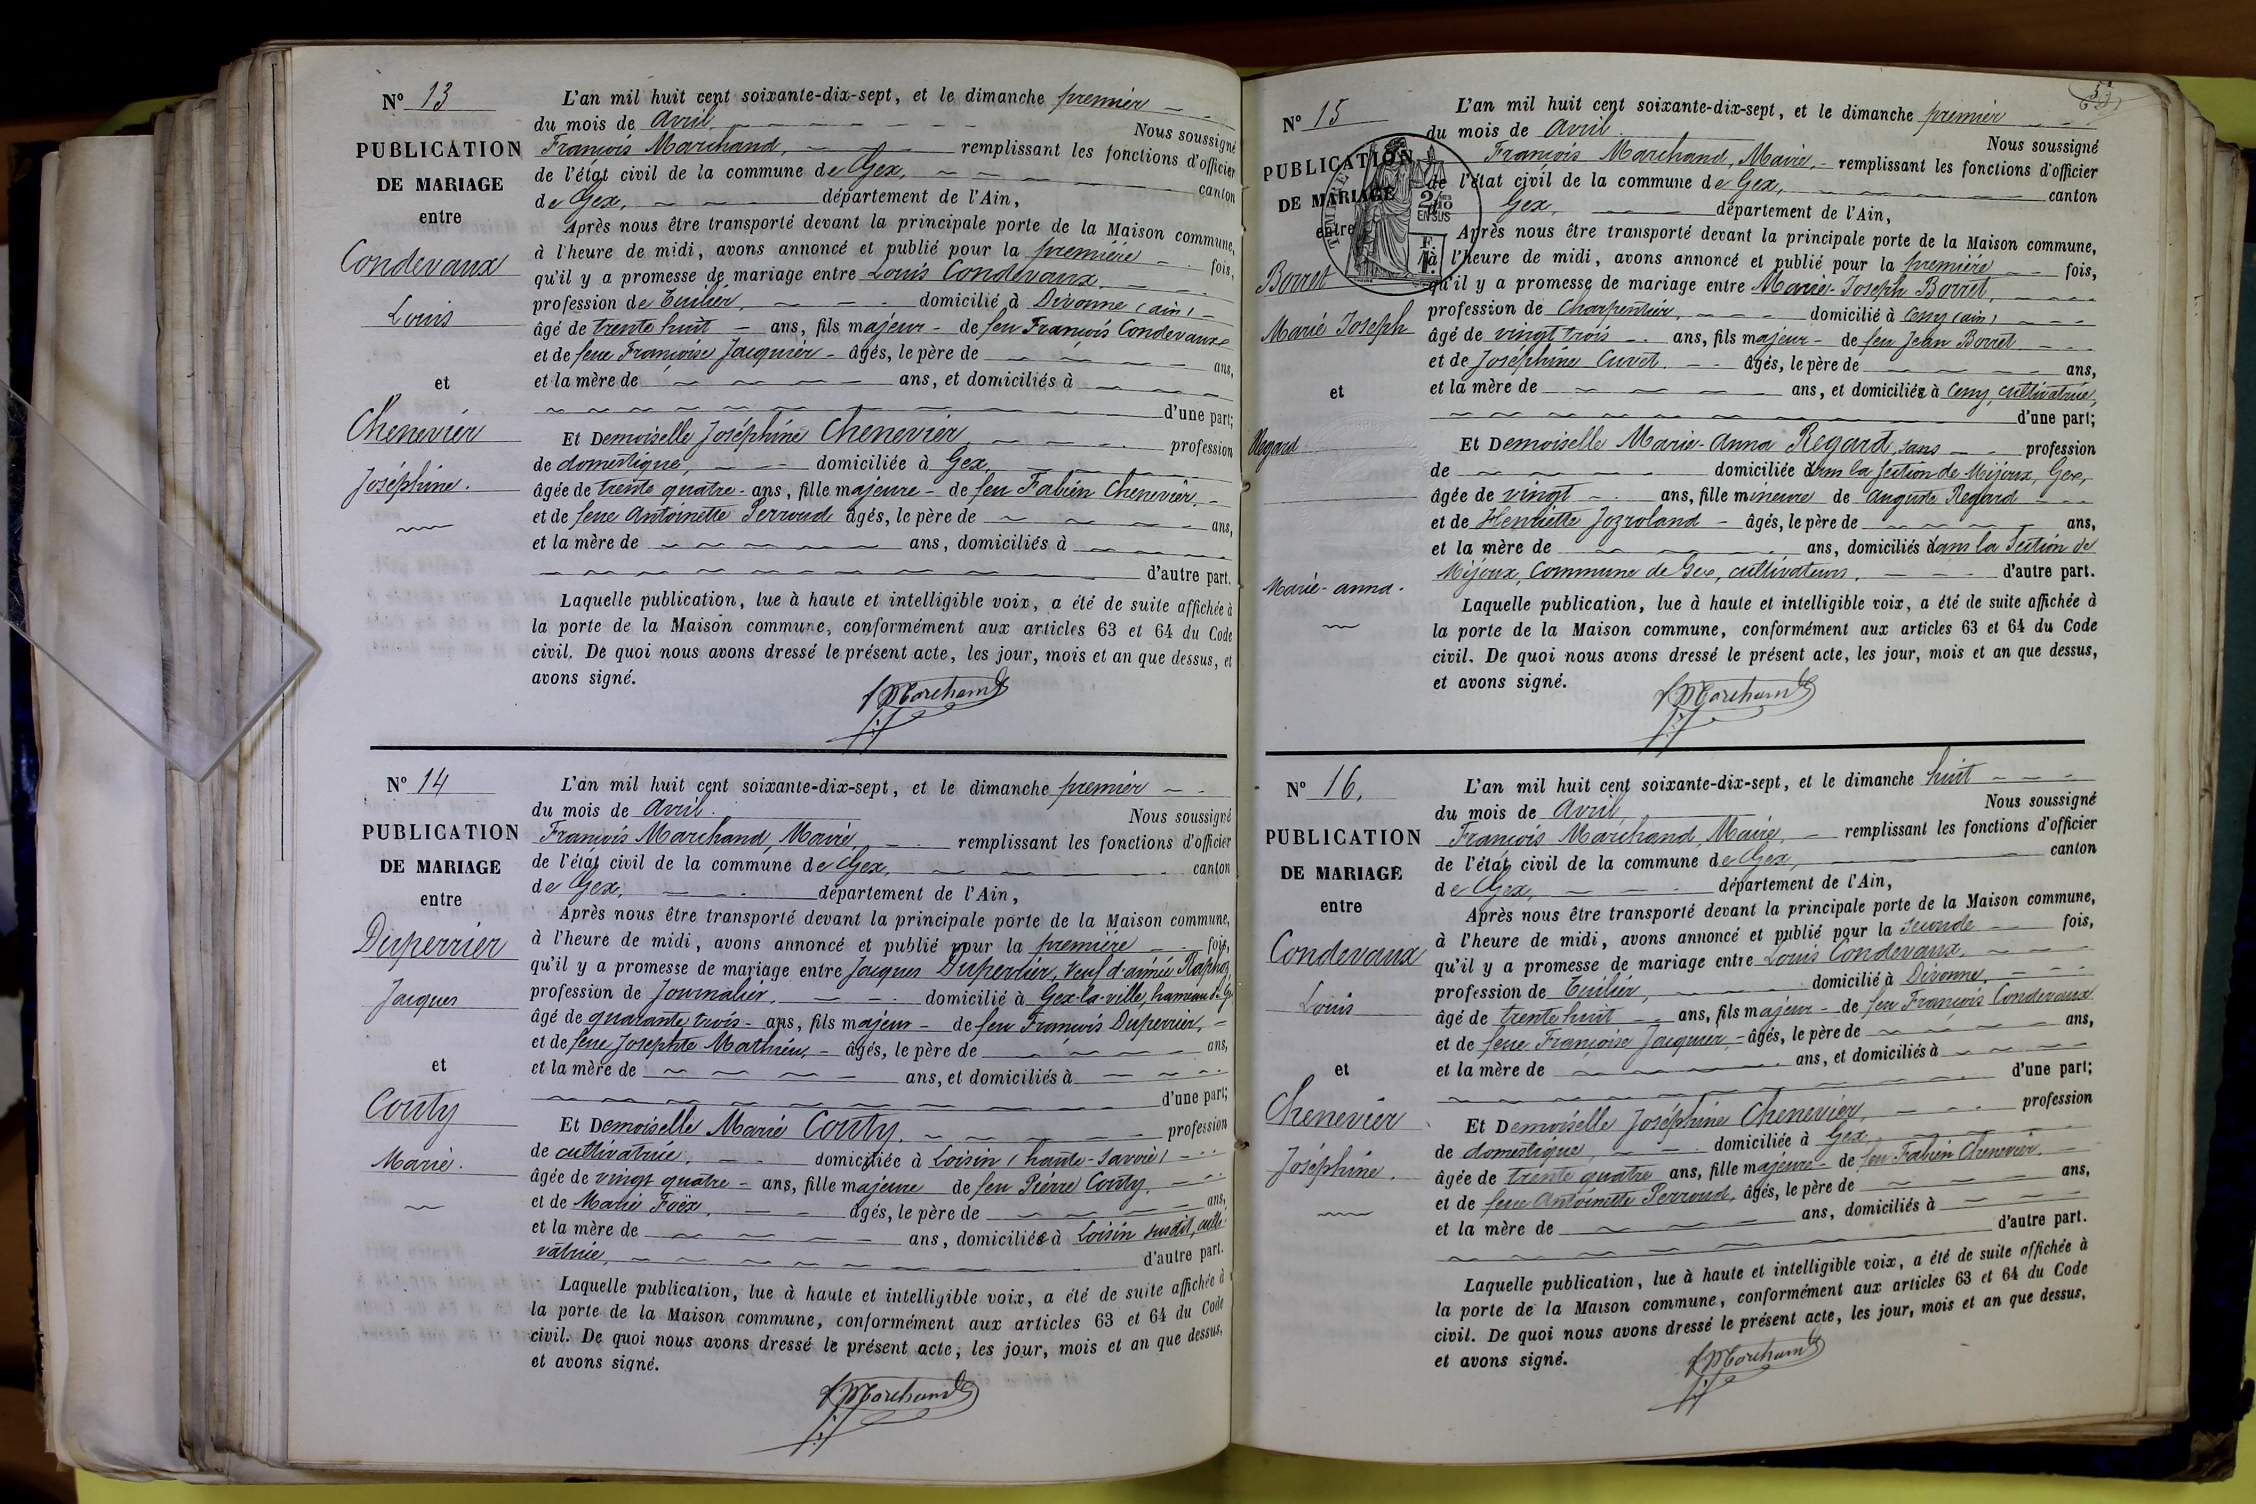 N° 13
PUBLICATION
DE MARIAGE
entre
Condevaux
Louis
et
Chenevier
Joséphine.
L'an mil huit cent soixante-dix-sept, et le dimanche premier
du mois de Avril
Nous soussigné
François Marchand, remplissant les fonctions d'officier
de l'état civil de la commune de Gex, canton
de Gex, département de l'Ain,
Après nous être transporté devant la principale porte de la Maison commune,
à l'heure de midi, avons annoncé et publié pour la première fois,
qu'il y a promesse de mariage entre Louis Condevaux,
profession de Tuilier, domicilié à Divonne (ain)
âgé de trente huit ans, fils majeur de feu François Condevaux
et de feue Françoise Jacquier âgés, le père de ans,
et la mère de ans, et domiciliés à
d'une part;
Et Demoiselle Joséphine Chenevier profession
de domestique, domiciliée à Gex,
âgée de trente quatre ans, fille majeure de feu Fabien Chenevier,
et de feue Antoinette Perroud âgés, le père de ans,
et la mère de ans, domiciliés à
d'autre part.
Laquelle publication, lue à haute et intelligible voix, a été de suite affichée à
la porte de la Maison commune, conformément aux articles 63 et 64 du Code
civil. De quoi nous avons dressé le présent acte, les jour, mois et an que dessus, et
avons signé.
f Marchand
N° 14
PUBLICATION
DE MARIAGE
entre
Duperrier
Jacques
et
Couty
Marie.
L'an mil huit cent soixante-dix-sept, et le dimanche premier
du mois de Avril.
Nous soussigné
François Marchand, Maire, remplissant les fonctions d'officier
de l'état civil de la commune de Gex, canton
de Gex, département de l'Ain,
Après nous être transporté devant la principale porte de la Maison commune,
à l'heure de midi, avons annoncé et publié pour la première fois,
qu'il y a promesse de mariage entre Jacques Duperrier, Veuf d'aimée Raphoz
profession de Journalier, domicilié à Gex-la-ville, hameau de G.
âgé de quarante trois ans, fils majeur de feu François Duperrier,
et de feue Josephte Mathieu, âgés, le père de ans,
et la mère de ans, et domiciliés à
d'une part;
Et Demoiselle Marie Couty, profession
de cultivatrice, domiciliée à Loisin (haute-Savoie)
âgée de vingt quatre ans, fille majeure de feu Pierre Couty,
et de Marie Foëx, âgés, le père de ans,
et la mère de ans, domiciliée à Loisin susdit, culti-
vatrice, d'autre part.
Laquelle publication, lue à haute et intelligible voix, a été de suite affichée à
la porte de la Maison commune, conformément aux articles 63 et 64 du Code
civil. De quoi nous avons dressé le présent acte, les jour, mois et an que dessus,
et avons signé.
f Marchand
N° 15
PUBLICATION
DE MARIAGE
entre
Borret
Marie Joseph
et
Regard
Marie-anna.
L'an mil huit cent soixante-dix-sept, et le dimanche premier
du mois de Avril.
Nous soussigné
François Marchand, Maire, remplissant les fonctions d'officier
de l'état civil de la commune de Gex, canton
de Gex, département de l'Ain,
Après nous être transporté devant la principale porte de la Maison commune,
à l'heure de midi, avons annoncé et publié pour la première fois,
qu'il y a promesse de mariage entre Marie-Joseph Borret,
profession de Charpentier, domicilié à Cessy (ain)
âgé de vingt trois ans, fils majeur de feu Jean Borret
et de Joséphine Cuvet. âgés, le père de ans,
et la mère de ans, et domiciliée à Cessy, cultivatrice,
d'une part;
Et Demoiselle Marie-anna Regard, sans profession
de domiciliée dans la section de Mijoux, Gex,
âgée de vingt ans, fille mineure de auguste Regard
et de Henriette Jozroland âgés, le père de ans,
et la mère de ans, domiciliés dans la Section de
Mijoux, Commune de Gex, cultivateurs, d'autre part.
Laquelle publication, lue à haute et intelligible voix, a été de suite affichée à
la porte de la Maison commune, conformément aux articles 63 et 64 du Code
civil. De quoi nous avons dressé le présent acte, les jour, mois et an que dessus,
et avons signé.
f Marchand
N° 16.
PUBLICATION
DE MARIAGE
entre
Condevaux
Louis
et
Chenevier
Joséphine.
L'an mil huit cent soixante-dix-sept, et le dimanche huit
du mois de Avril,
Nous soussigné
François Marchand, Maire, remplissant les fonctions d'officier
de l'état civil de la commune de Gex, canton
de Gex, département de l'Ain,
Après nous être transporté devant la principale porte de la Maison commune,
à l'heure de midi, avons annoncé et publié pour la seconde fois,
qu'il y a promesse de mariage entre Louis Condevaux,
profession de Tuilier, domicilié à Divonne,
âgé de trente huit ans, fils majeur de feu François Condevaux
et de feue Françoise Jacquier, âgés, le père de ans,
et la mère de ans, et domiciliés à
d'une part;
Et Demoiselle Joséphine Chenevier, profession
de domestique, domiciliée à Gex,
âgée de trente quatre ans, fille majeure de feu Fabien Chenevier.
et de feue Antoinette Perroud, âgés, le père de ans,
et la mère de ans, domiciliés à
d'autre part.
Laquelle publication, lue à haute et intelligible voix, a été de suite affichée à
la porte de la Maison commune, conformément aux articles 63 et 64 du Code
civil. De quoi nous avons dressé le présent acte, les jour, mois et an que dessus,
et avons signé.
f Marchand